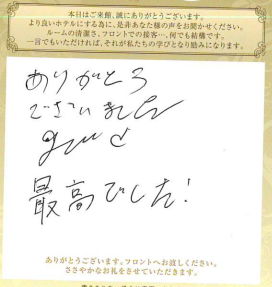 本日はご来館、誠にありがとうございます。
より良いホテルにする為に、是非あなた様の声をお聞かせください。
ルームの清潔さ、フロントでの接客…、何でも結構です。
一言でもいただければ、それが私たちの学びとなり励みになります。
ありがとう
ございました
最高でした!
ありがとうございます。フロントへお渡しください。
ささやかなお礼をさせていただきます。